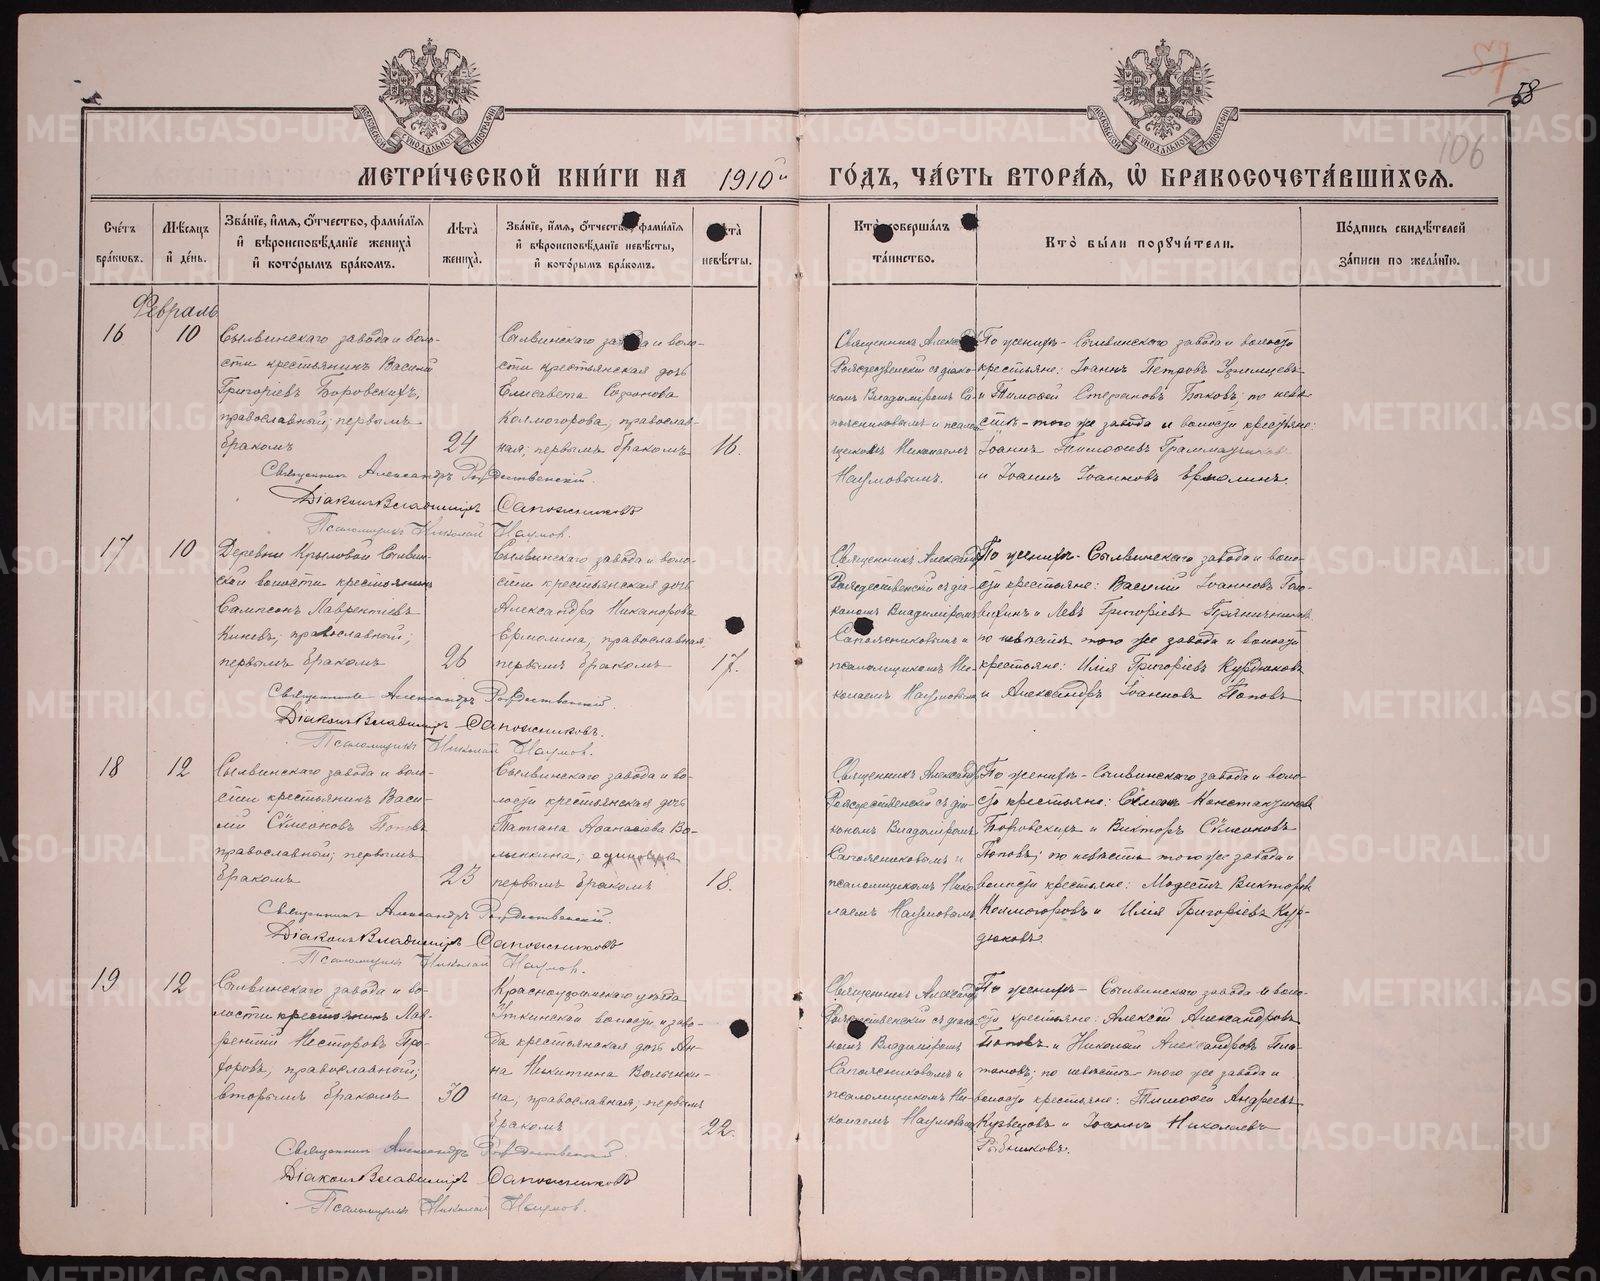 57
58
106
МЕТРИ́ЧЕСКОЙ КНИ́ГИ НА 1910й ГО́ДЪ, ЧА́СТЬ ВТОРА́Я, Ѡ БРАКОСОЧЕТА́ВШИХСЯ.
Сче́тъ бра́кѡвъ.
Мѣ́сяцъ и де́нь.
Зва́нїе, и́мя, ѻ́тчество, фами́лїя и вѣроисповѣ́данїе жениха̀ и кото́рымъ бра́комъ.
Лѣ́та жениха̀.
Зва́нїе, и́мя, ѻ́тчество, фами́лїя и вѣроисповѣ́данїе невѣ́сты, и кото́рымъ бра́комъ.
Лѣ́та невѣ́сты.
Кто̀ соверша́лъ та́инство.
Кто̀ бы́ли поручи́тели.
По́дпись свидѣ́телей за́писи по жела́нїю.
Февраль
16
10
Сылвинскаго завода и воло-
сти крестьянинъ Василій
Григоріевъ Боровскихъ,
православный; первымъ
бракомъ
24
Сылвинскаго завода и воло-
сти крестьянская дочь
Елисавета Софонова
Колмогорова, православ-
ная; первымъ бракомъ
16.
Священникъ Александръ
Рождественскій съ діако-
номъ Владиміромъ Са-
пожниковымъ и псалом-
щикомъ Николаемъ
Наумовымъ.
По женихѣ - Сылвинскаго завода и волости
крестьяне: Іоаннъ Петровъ
и Тимофей Стефановъ Быковъ; по невѣ-
стѣ - того же завода и волости крестьяне:
Іоаннъ Тимофеевъ Грамматчиковъ
и Іоаннъ Іоанновъ Ермолинъ.
Священникъ Александръ Рождественскій.
Діаконъ Владиміръ Сапожниковъ
Псаломщикъ Николай Наумов.
17
10
Деревни Крыловой Сылвин-
ской волости крестьянинъ
Сампсонъ Лаврентіевъ
Киневъ, православный;
первымъ бракомъ
26
Сылвинскаго завода и воло-
сти крестьянская дочь
Александра Никанорова
Ермолина, православная;
первымъ бракомъ
17.
Священникъ Александръ
Рождественскій съ діа-
кономъ Владиміромъ
Сапожниковымъ и
псаломщикомъ Ни-
колаемъ Наумовымъ
По женихѣ - Сылвинскаго завода и воло-
сти крестьяне: Василій Іоанновъ
и Левъ Григоріевъ Пряничниковъ
по невѣстѣ того же завода и волости
крестьяне: Илія Григоріевъ Курдюковъ
и Александръ Іоанновъ Поповъ
Священникъ Александръ Рождественскій.
Діаконъ Владиміръ Сапожниковъ.
Псаломщикъ Николай Наумов.
18
12
Сылвинскаго завода и воло-
сти крестьянинъ Васи-
лій Сѵмеоновъ Поповъ
православный; первымъ
бракомъ
23
Сылвинскаго завода и во-
лости крестьянская дочь
Татіана Афанасіева Во-
лынкина;
первымъ бракомъ
18.
Священникъ Александръ
Рождественскій съ діа-
кономъ Владиміромъ
Сапожниковымъ и
псаломщикомъ Нико-
лаемъ Наумовымъ
По женихѣ - Сылвинскаго завода и воло-
сти крестьяне: Сѵмеонъ Константиновъ
Боровскихъ и Викторъ Сѵмеоновъ
Поповъ; по невѣстѣ того же завода и
волости крестьяне: Модестъ Викторов
Колмогоровъ и Илія Григоріевъ Кур-
дюковъ.
Священникъ Александръ Рождественскій.
Діаконъ Владиміръ Сапожниковъ
Псаломщикъ Николай Наумов.
19
12
Сылвинскаго завода и во-
лости крестьянинъ Лав-
рентій Несторовъ Про-
форовъ, православный;
вторымъ бракомъ
30
Красноуфимскаго уѣзда
Уткинской волости и заво-
да крестьянская дочь Ан-
на Никитина Волынки-
на; православная, первымъ
бракомъ
22.
Священникъ Александръ
Рождественскій съ діако-
номъ Владиміромъ
Сапожниковымъ и
псаломщикомъ Ни-
колаемъ Наумовымъ
По женихѣ - Сылвинскаго завода и воло-
сти крестьяне: Алексѣй Александровъ
Поповъ и Николай Александровъ Пла-
тоновъ; по невѣстѣ - того же завода и
волости крестьяне: Тимофей Андреевъ
Кузнецовъ и Іоаннъ Николаевъ
Рыбниковъ.
Священникъ Александръ Рождественскій
Діаконъ Владиміръ Сапожниковъ
Псаломщикъ Николай Наумов.